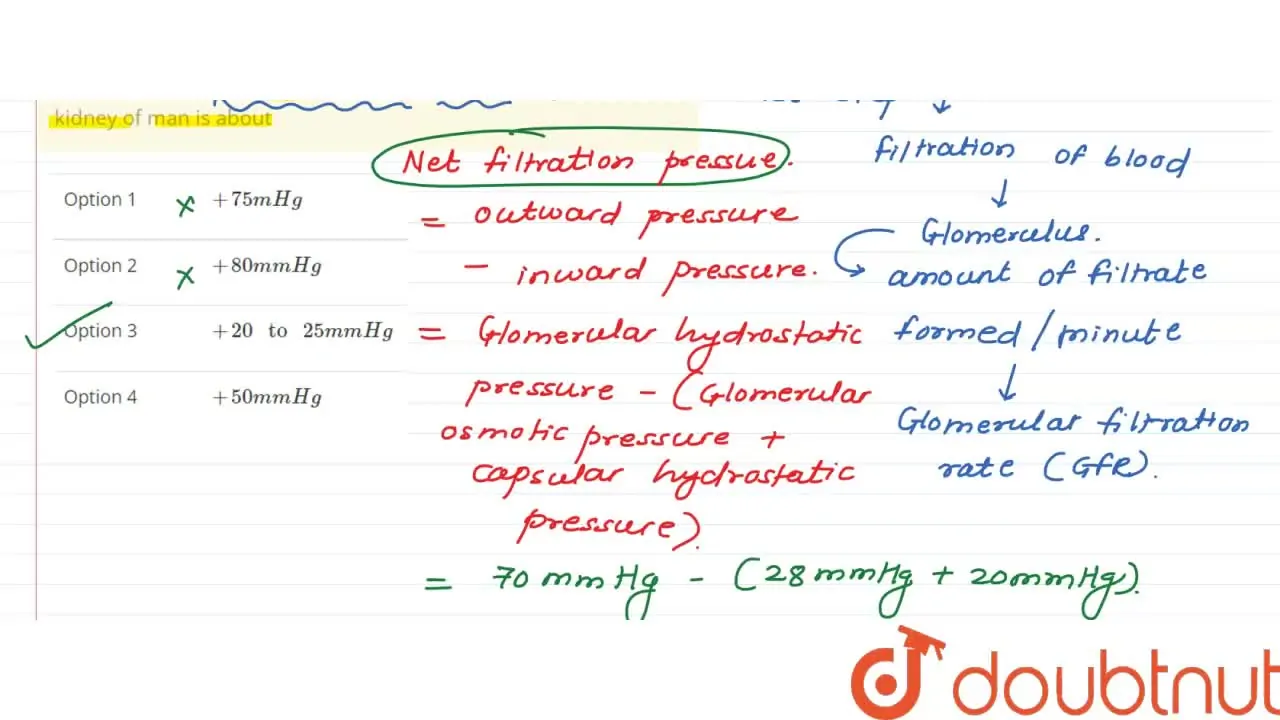 kidney of man is about
Option 1 +75mHg
Option 2 +80mmHg
Option 3 +20 to 25mmHg
Option 4 +50mmHg
Net filtration pressue.
= outward pressure
- inward pressure.
= Glomerular hydrostatic
pressure - (Glomerular
osmotic pressure +
capsular hydrostatic
pressure).
= 70 mmHg - (28mmHg + 20mmHg).
filtration of blood
↓
Glomerulus.
amount of filtrate
formed/minute
↓
Glomerular filtration
rate (GfR).
doubtnut